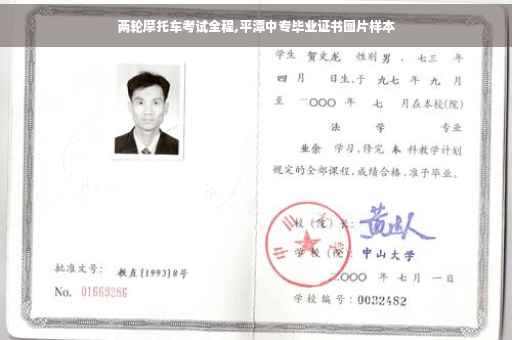 两轮摩托车考试全程,平潭中专毕业证书图片样本
学生 贺文龙 性别 男 、七三 年
四 月 日生,于 九七 年 九 月
至 二〇〇〇 年 七 月在本校(院)
法 学 专业
业余 学习,修完 本 科教学计划
规定的全部课程,成绩合格,准予毕业。
校(院)长:
学校(院): 中山大学
二〇〇〇 年 七 月 一 日
学校编号: 0032482
批准文号: 教直[1993]8号
No. 01663286